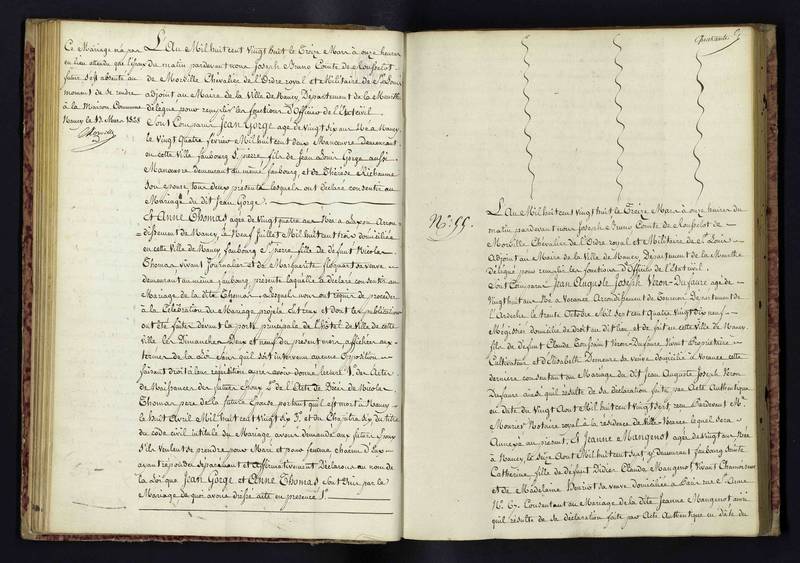 Ce Mariage n'a pas
eu lieu attendu que l'Epoux
futur s'est absenté au
moment de se rendre
à la Maison Commune
Nancy le 13 Mars 1828
L'An Mil huit cent vingt huit le Treize Mars à onze heures
du matin pardevant nous Joseph Bruno Comte de
de Morville Chevalier de l'Ordre royal et Militaire de St Louis
adjoint au Maire de la Ville de Nancy, Département de la Meurthe
délégué pour remplir les fonctions d'Officier de l'Etat civil
Sont Comparus Jean Gorge agé de vingt six ans Né à Nancy
le vingt quatre février Mil huit cent deux Manœuvre demeurant
en cette Ville faubourg St pierre fils de Jean Louis Gorge aussi
Manœuvre demeurant au même faubourg, et de Thérèse
son épouse tous deux présents lesquels ont déclaré consentir au
Mariage du dit Jean Gorge.
Et Anne Thomas agée de vingt quatre ans Née à Arron-
-dissement de Nancy, le Neuf juillet Mil huit cent trois domiciliée
en cette Ville de Nancy faubourg St pierre fille de défunt Nicolas
Thomas vivant Journalier et de Marguerite sa veuve
demeurant au même faubourg, présente laquelle a déclaré consentir au
Mariage de la dite Thomas. Lesquels nous ont requis de procéder
à la Célébration du Mariage projeté entr'eux et dont les publications
ont été faites devant la porte principale de l'hôtel de Ville de cette
ville les Dimanches Deux et neuf du présent mois, affichées aux
termes de la Loi sans qu'il soit intervenu aucune opposition
faisant droit à leur réquisition après avoir donné lecture 1° des Actes
de Naissances des futurs Epoux 2° de l'Acte de Décès de Nicolas
Thomas père de la future Epouse portant qu'il est mort à Nancy
le huit Avril Mil huit cent vingt six 3° et du Chapitre six du titre
du code civil intitulé du Mariage avons demandé aux futurs Epoux
s'ils veulent se prendre pour Mari et pour femme chacun d'eux
ayant répondu séparément et affirmativement Déclarons au nom de
la Loi que Jean Gorge et Anne Thomas sont unis par le
Mariage de quoi avons dressé acte en présence 1°
N° 55.
L'An Mil huit cent vingt huit le Treize Mars à onze heures du
matin, pardevant nous Joseph Bruno Comte de
Morville Chevalier de l'Ordre royal et Militaire de St Louis
Adjoint au Maire de la Ville de Nancy, Département de la Meurthe
délégué pour remplir les fonctions d'Officier de l'Etat civil.
Sont Comparus Jean Auguste Joseph Véron-Dufaure agé de
vingt huit ans Né à Vocance Arrondissement de Tournon Département de
l'Ardèche le trente Octobre Mil sept cent quatre vingt dix neuf
Mégissier domicilié de droit au dit lieu et de fait en cette Ville de Nancy
fils de défunt Claude Toussaint Véron-Dufaure vivant Propriétaire
Cultivateur et d'Elisabeth sa veuve domiciliée à Vocance cette
dernière consentant au Mariage du dit Jean Auguste Joseph Véron
Dufaure ainsi qu'il résulte de sa déclaration faite par Acte Authentique
en date du vingt Aout Mil huit cent vingt sept, reçu Pardevant Me
Notaire royal à la résidence de Ville lequel sera
Annexé au présent. Et Jeanne Mangenot agée de vingt ans Née
à Nancy, le Mil huit cent sept y demeurant faubourg Sainte
Catherine fille de défunt Didier Claude Mangenot vivant Chamoiseur
et de Madelaine Henriot sa veuve domiciliée à Paris rue
N° 67. Consentant au Mariage de la dite Jeanne Mangenot ainsi
qu'il résulte de sa déclaration faite par Acte Authentique en date du